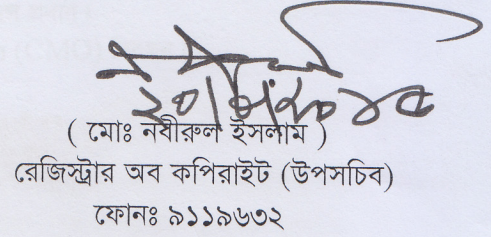 ( মোঃ নবীরুল ইসলাম )
রেজিস্ট্রার অব কপিরাইট (উপসচিব)
ফোনঃ ৯১১৯৬৩২